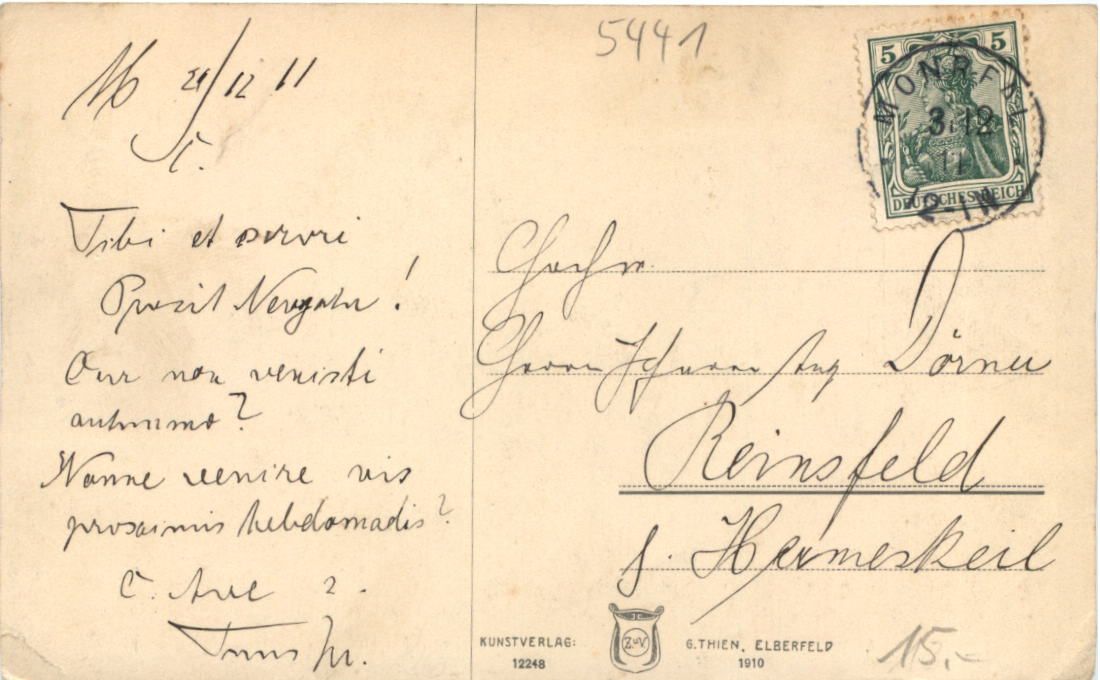 5441
M 29/12 11
5 5
MONREAL
3.12
11
2-1N
DEUTSCHES REICH
Tibi et
Prosit Neujahr!
Cur non venisti
autumno?
Nonne venire vis
proximis hebdomadis?
C. Ave 2.
Tuus
Hochw.
Herrn Pfarrer Aug Dörner
Reinsfeld
b. Hermeskeil
KUNSTVERLAG:
12248
Z.u.V
G. THIEN, ELBERFELD
1910
15.-